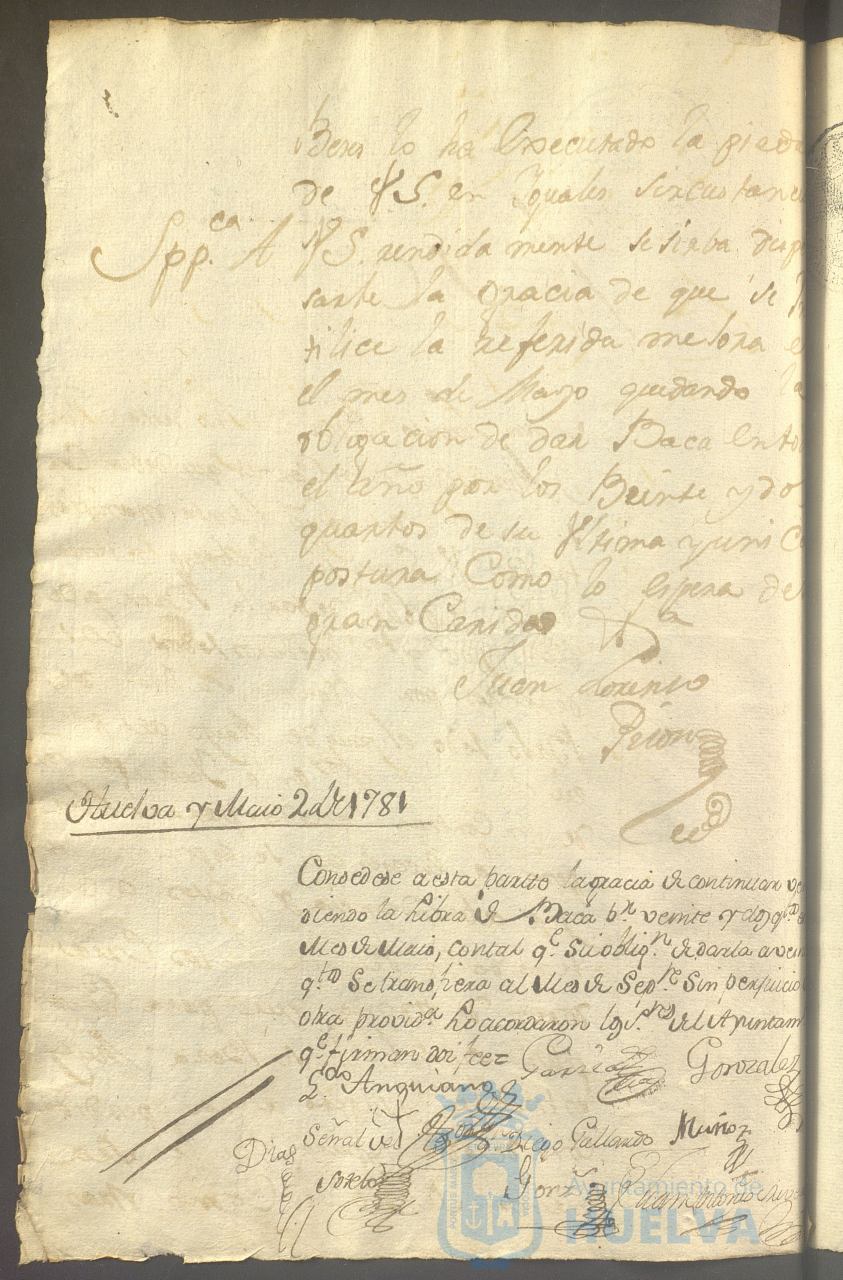 Beses lo ha Executado la pieda
de VS. en Yguales sircustanci
Spp.ca A VS. rendida mente se sirba disp
sarle la Gracia de que se
tilice la referida mejora e
el mes de Marzo quedando la
obligacion de dar Baca Ento
el Año por los Beinte y do
quartos de su Vltima y uni C
postura Como lo Espera de
gran Caridad
Juan Lorenso
Peson
Huelva y Maio 2 de 1781
Consedese a esta parte la gracia de continuar ve
diendo la Libra de Baca p.r veinte y dos q.tos
Mes de Maio, con tal q.e su oblig.n de darla a vein
q.tos Se transfiera al Mes de Sep.re Sin perjuicio
otra provid.a Lo acordaron los S.res del Ayuntam
q.e firman doi fee=
Garzia
Gonzalez
L.do Anguiano
Señal de
Diego Gallardo
Muñoz
Dias
Sotelo
Gonz.
Ayuntamiento de
HUELVA